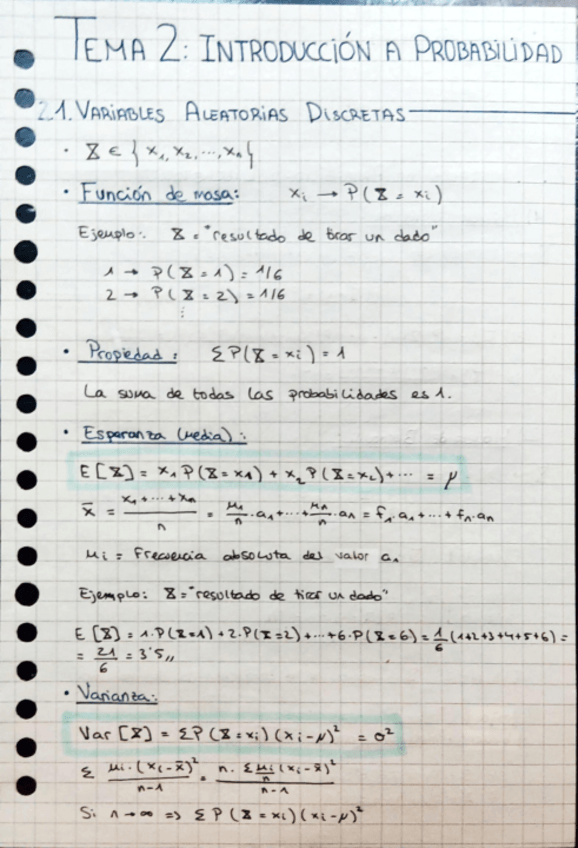 TEMA 2: INTRODUCCIÓN A PROBABILIDAD
2.1. VARIABLES ALEATORIAS DISCRETAS
· X ∈ { x₁, x₂, ..., xₙ }
· Función de masa: xᵢ → P(X = xᵢ)
Ejemplo: X = "resultado de tirar un dado"
1 → P(X = 1) = 1/6
2 → P(X = 2) = 1/6
⋮
· Propiedad: Σ P(X = xᵢ) = 1
La suma de todas las probabilidades es 1.
· Esperanza (Media):
E[X] = x₁ P(X = x1) + x₂ P(X = x₂) + ... = μ
x̄ = (x₁ + ... + xₙ)/n = μ₁/n · a₁ + ... + μₙ/n · aₙ = f₁·a₁ + ... + fₙ·aₙ
μᵢ = Frecuencia absoluta del valor a₁
Ejemplo: X = "resultado de tirar un dado"
E[X] = 1·P(X=1) + 2·P(X=2) + ... + 6·P(X=6) = 1/6 (1+2+3+4+5+6) =
= 21/6 = 3'5,,
· Varianza:
Var[X] = Σ P(X = xᵢ)(xᵢ - μ)² = σ²
Σ μᵢ·(xᵢ - x̄)²/(n-1) = n · Σ μᵢ/n (xᵢ - x̄)²/(n-1)
Si n → ∞ => Σ P(X = xᵢ)(xᵢ - μ)²